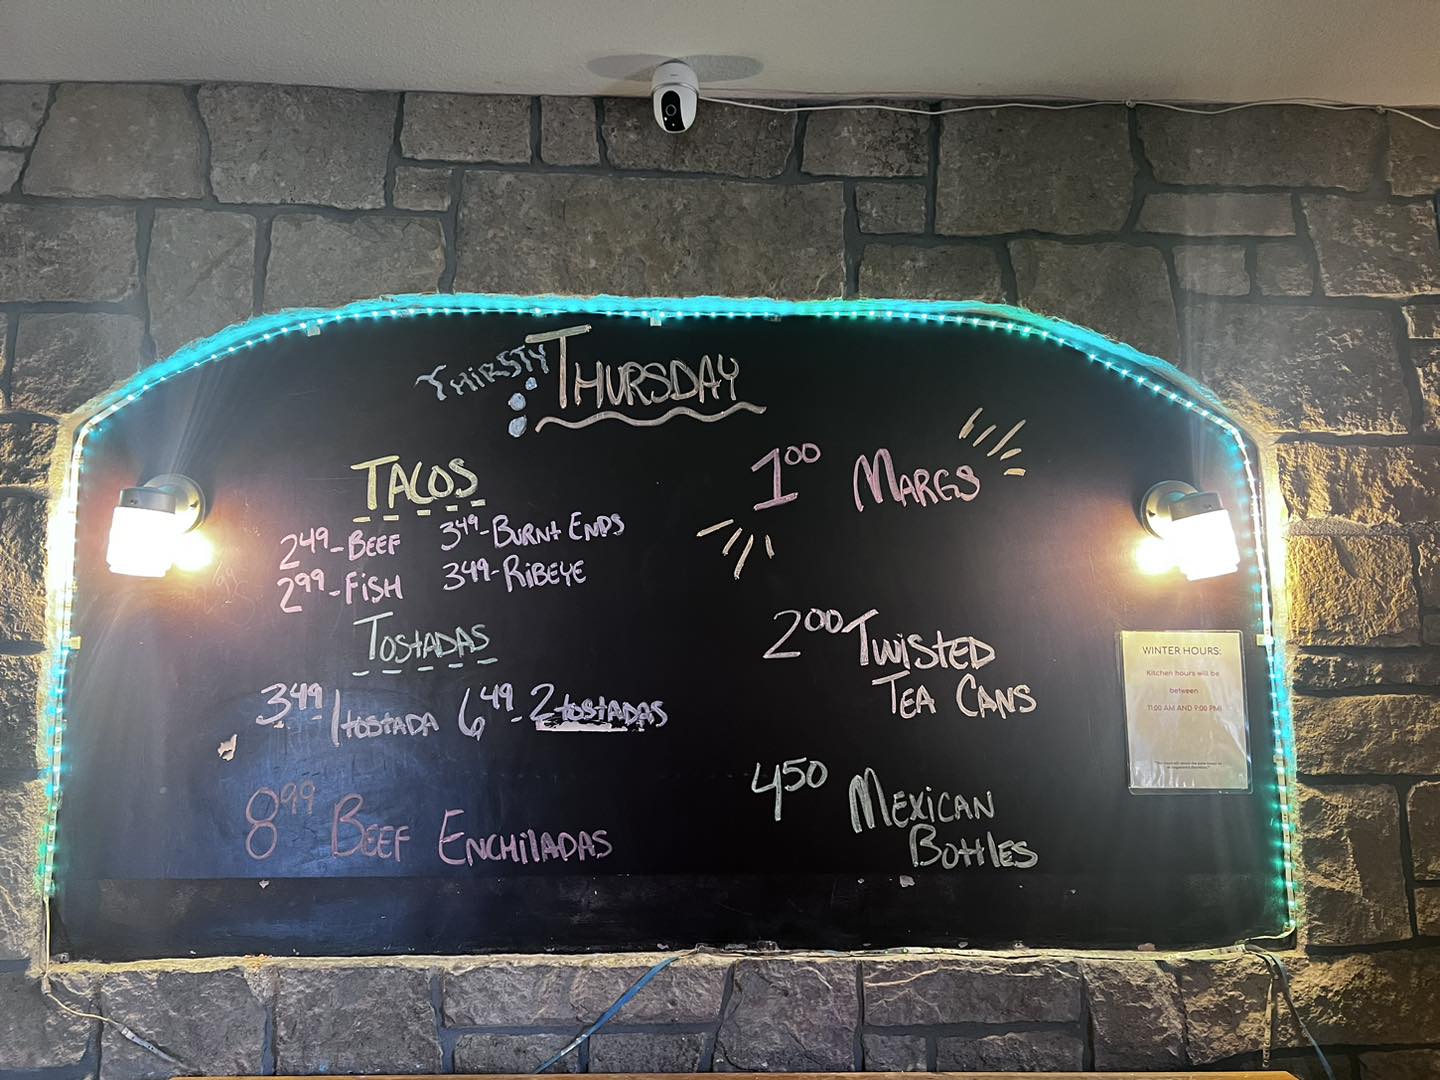 THIRSTY THURSDAY
TACOS
2.49-BEEF 3.49-BURNT ENDS
2.99-FISH 3.49-RIBEYE
TOSTADAS
3.49 1 TOSTADA 6.49 2 TOSTADAS
8.99 BEEF ENCHILADAS
1.00 MARGS
2.00 TWISTED
TEA CANS
4.50 MEXICAN
BOTTLES
WINTER HOURS:
Kitchen hours will be
between
11:00 AM AND 9:00 PM!